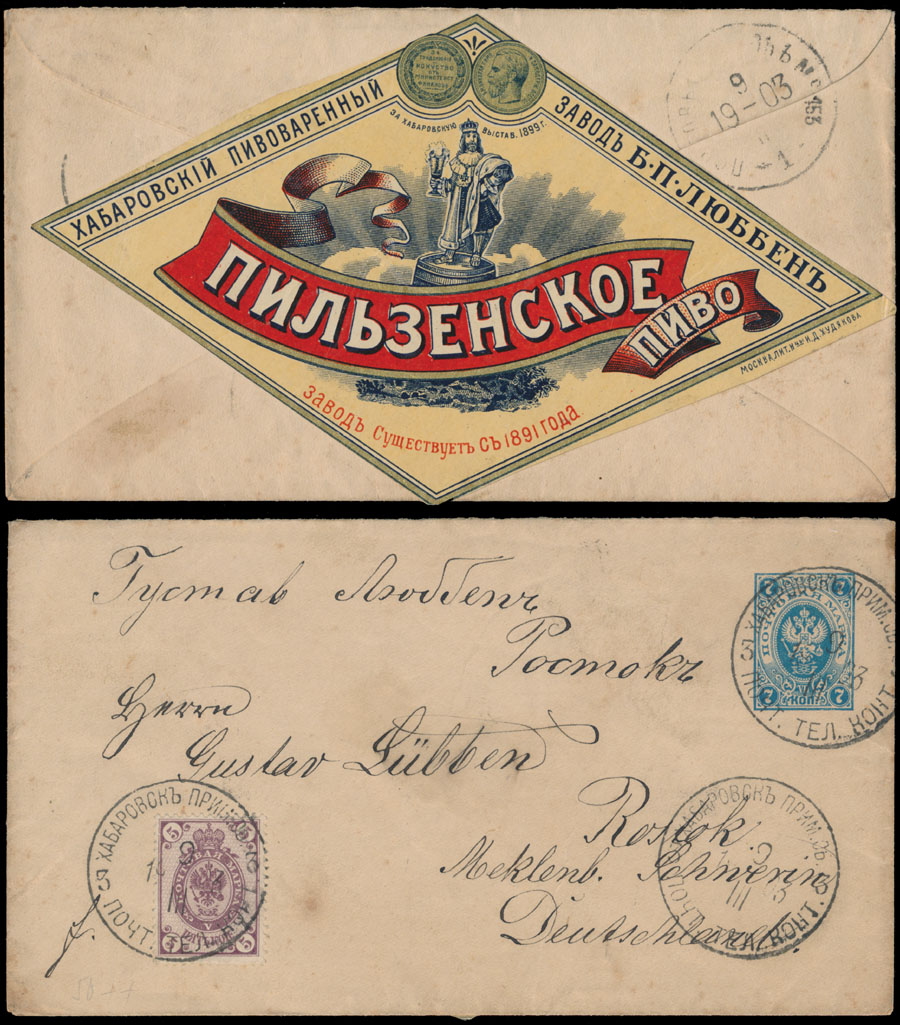 ХАБАРОВСКІЙ ПИВОВАРЕННЫЙ
ЗАВОДЪ Б·П·ЛЮББЕНЪ
ЗА ХАБАРОВСКУЮ ВЫСТАВ. 1899 г.
ПИЛЬЗЕНСКОЕ
ПИВО
ЗАВОДЪ СУЩЕСТВУЕТЪ СЪ 1891 ГОДА
МОСКВА, ЛИТ. И.Д. ХУДЯКОВА
9
19-03
Густав Люббенъ
Ростокъ
Herrn
Gustav Lübben
Rostok.
Meklenb. Schwerin
Deutschland
ХАБАРОВСКЪ ПРИМ. ОБ.
ПОЧТ. ТЕЛ. КОНТ.
7 7
7 КОП. 7
ХАБАРОВСКЪ ПРИМ. ОБ.
9
III
ПОЧТ. ТЕЛ.
5 5
5 5
ХАБАРОВСКЪ ПРИМ. ОБ.
9
III 3
КОНТ.